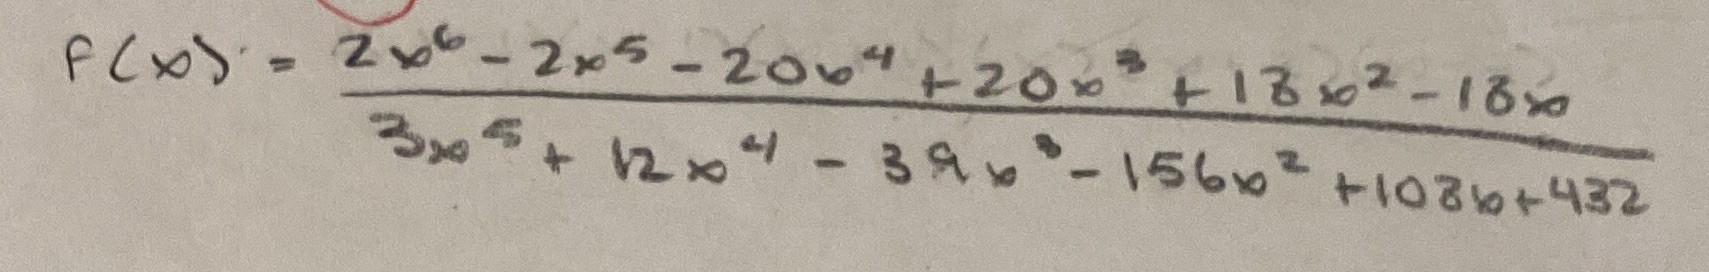 f(x) = 2x^6 - 2x^5 - 20x^4 + 20x^3 + 18x^2 - 18x
3x^5 + 12x^4 - 39x^3 - 156x^2 + 108x + 432